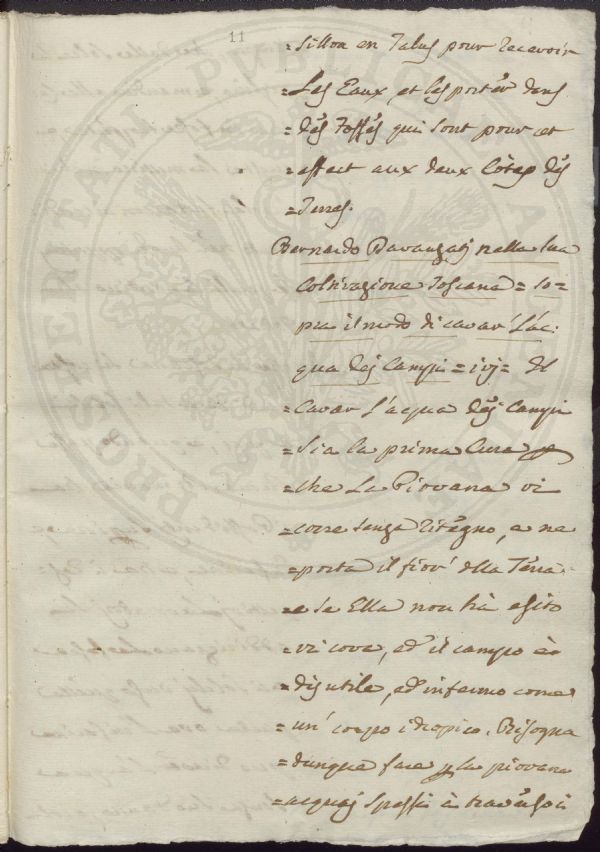 11
=sillon en Talus pour recevoir
=Les Eaux, et les porter dans
=des Fossés qui sont pour cet
=effect aux deux Côtes des
=Terres.
Bernardo Davanzatj nella sua
Coltivazione Toscana = so=
pra il modo di cavar L'ac:
qua dej Campi = ivj = del
=Cavar L'acqua dej Campi
=Sia la prima Cura p
=che La Piovana vi
=corre senza ritegno, e ne
=porta il fior della Terra
=e se Ella non hà esito
=vi cova, ed il campo è
=disutile, ed infermo come
=un' corpo idropico. Bisogna
=dunque fare p la piovana
=acquaj spessi à traverso i
PROSPERITATI PUBLICAE AUGENDAE